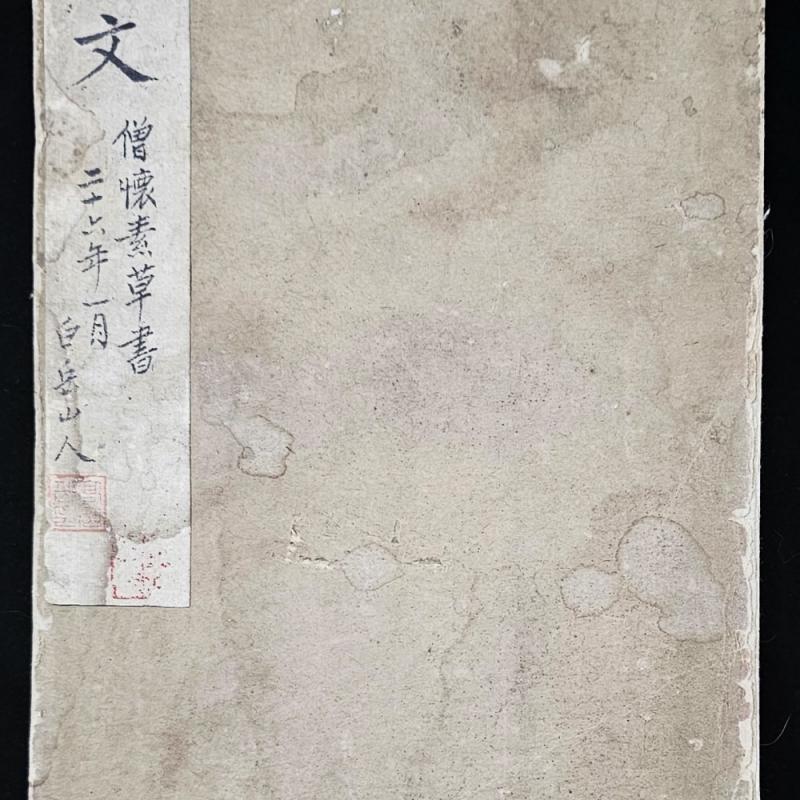 文
僧懷素草書
二十六年一月
白岳山人